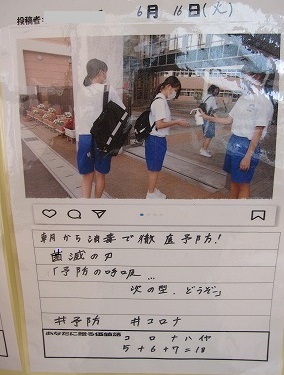 投稿者: 6月 16日(火)
朝から消毒で徹底予防!
菌滅の刃
「予防の呼吸…
次の型、どうぞ」
#予防 #コロナ
あなたに贈る価値語
コロナハヤ
5+6+7=18